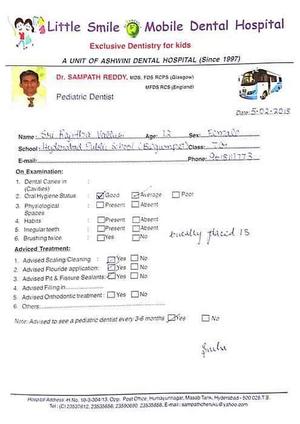 Little Smile Mobile Dental Hospital
Exclusive Dentistry for kids
A UNIT OF ASHWINI DENTAL HOSPITAL (Since 1997)
Dr. SAMPATH REDDY, MDS, FDS RCPS (Glasgow)
MFDS RCS (England)
Pediatric Dentist
Date: 5-02-2015
Name: Sri Age: 12 Sex: Female
School: Hyderabad Public School (Begumpet) Class:
E-mail: Phone:
On Examination:
1. Dental Caries in
(Cavities)
2. Oral Hygiene Status : Good Average Poor
3. Physiological : Present Absent
Spaces
4. Habits : Present Absent
5. Irregular teeth : Present Absent
6. Brushing twice : Yes No
placed 13
Adviced Treatment:
1. Advised Scaling/Cleaning : Yes No
2. Advised Flouride application: Yes No
3. Advised Pit & Fissure Sealants: Yes No
4. Advised Filling in
5. Advised Orthodontic treatment : Yes No
6. Others:
Note: Advised to see a pediatric dentist every 3-6 months Yes No
Hospital Address: H.No. 10-3-304/13, Opp. Post Office, Humayunnagar, Masab Tank, Hyderabad - 500 028 T.S.